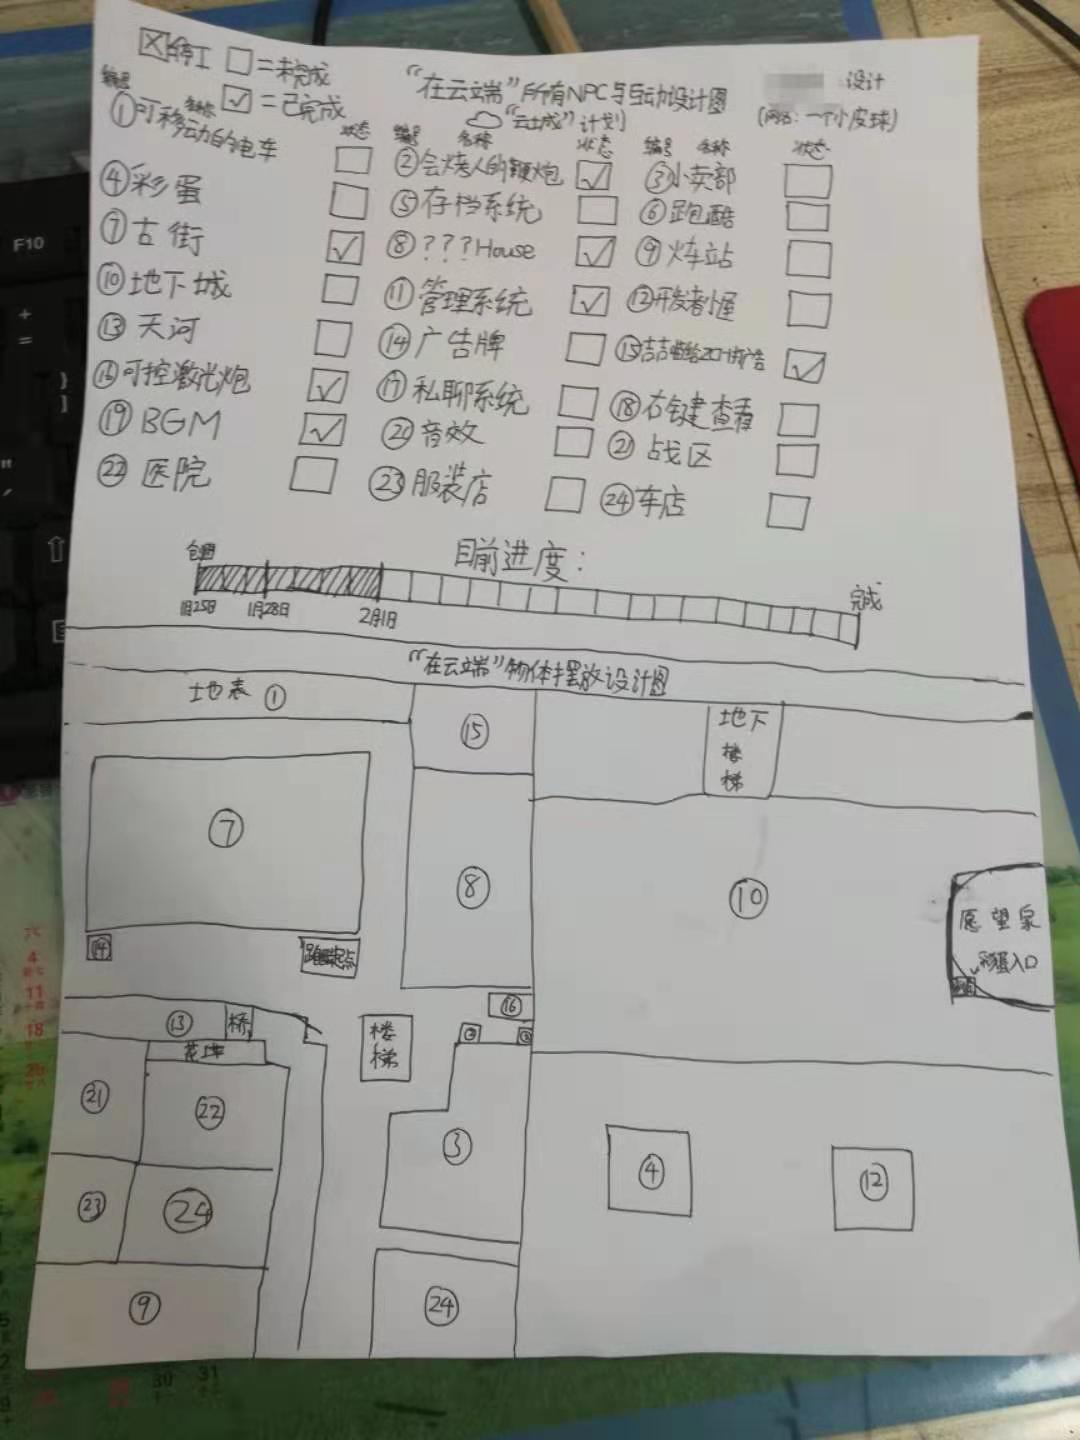 ☒停工 □=未完成
☑=已完成
"在云端"所有NPC与互动设计图
设计
"云城"计划
(网名:一个小皮球)
编号 名称 状态 编号 名称 状态 编号 名称 状态
①可移动的电车 □ ②会烧人的鞭炮 ☑ ③小卖部 □
④彩蛋 □ ⑤存档系统 □ ⑥跑酷 □
⑦古街 ☑ ⑧???House ☑ ⑨火车站 □
⑩地下城 □ ⑪管理系统 ☑ ⑫开发者小屋 □
⑬天河 □ ⑭广告牌 □ ⑮ ☑
⑯可控激光炮 ☑ ⑰私聊系统 □ ⑱右键查看 □
⑲BGM ☑ 音效 □ ㉑战区 □
㉒医院 □ ㉓服装店 □ ㉔车店 □
目前进度:
完成
1月25日 1月28日 2月1日
"在云端"物体摆放设计图
地表 ①
⑮
地下
楼
梯
⑦
⑧
⑩
愿望泉
彩蛋入口
⑭
跑酷起点
⑯
⑬ 桥
楼
梯
㉑
㉒
③
④
⑫
㉓
㉔
⑨
㉔
F10
+
=
}
]
六
4
11
18
25
30
31